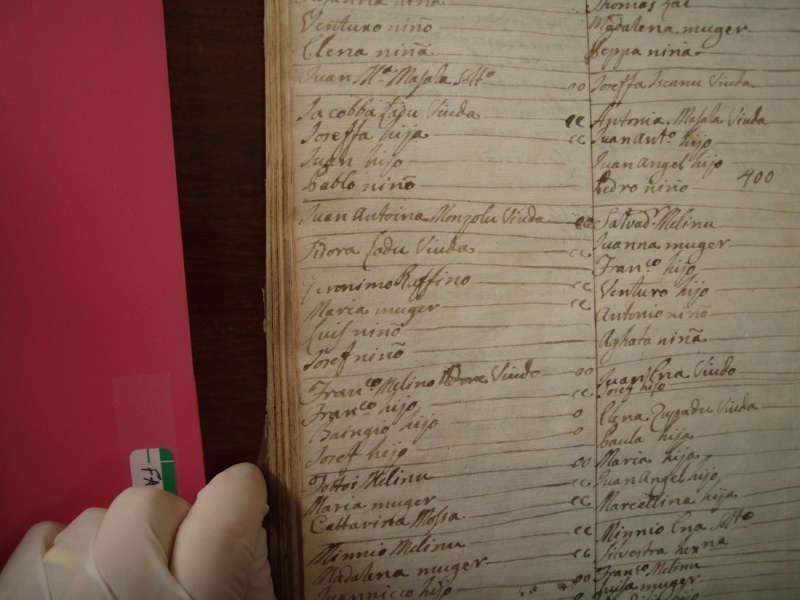 Venturo niño
Elena niña
Juan M.ª Masala Solt.º oo
Jacobba Zadu Viuda cc
Joseffa hija cc
Juan hijo
Pablo niño
Juan Antoina Monzolu Viuda oo
Fidora Zadu Viuda cc
Geronimo Reffino cc
Maria muger cc
Luis niño
Josef niño
Fran.co Melino Viudo oo
Fran.co hijo cc
Baingio hijo o
Josef hijo o
Totoi Melinu oo
Maria muger cc
Cattarina Mossa cc
Minnio Melinu cc
Madalena muger oo
Juannicco hijo
Thomas
Madalena muger
Peppa niña
Joseffa Iscanu Viuda
Antonia Masala Viuda
Juan Ant.º hijo
Juan Angel hijo
Pedro niño 400
Salvad.r Melinu
Juanna muger
Fran.co hijo
Venturo hijo
Antonio niño
Aghata niña
Juan Ena Viudo
Josef hijo
Elena Viuda
Paula hija
Maria hija
Juan Angel hijo
Marcellina hija
Minnio Ena Solt.º
Silvestra
Fran.co Melinu
Luisa muger